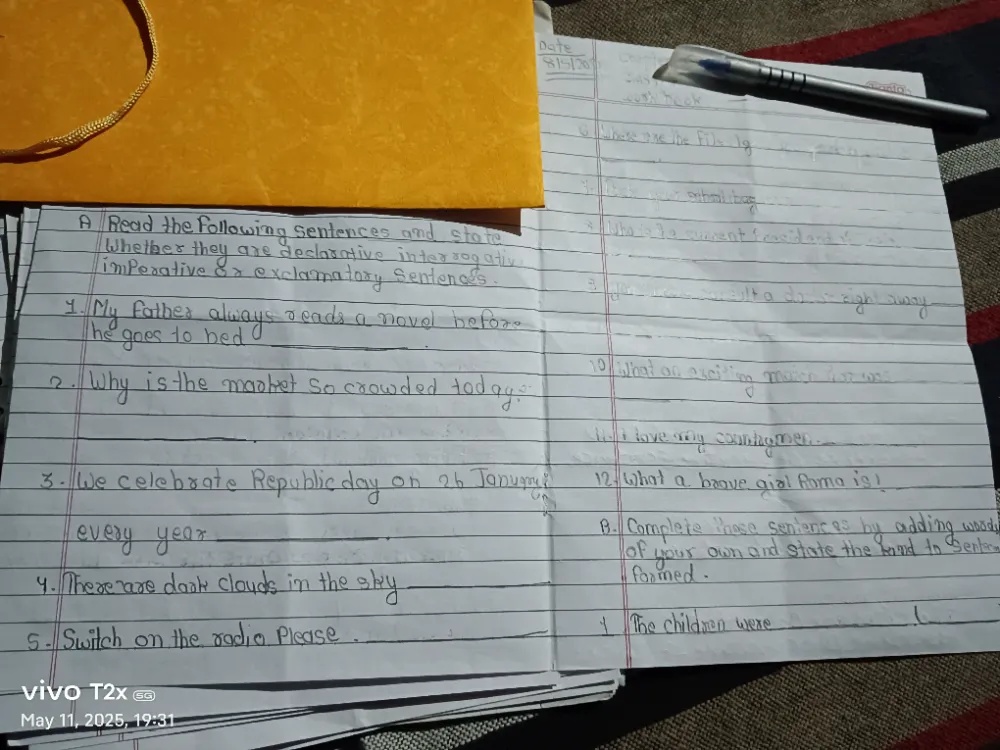 A Read the following sentences and state
Whether they are declarative interrogative
imperative or exclamatory sentences.
1. My father always reads a novel before
he goes to bed
2. Why is the market so crowded today?
3. We celebrate Republic day on 26 January
every year
4. There are dark clouds in the sky
5. Switch on the radio Please.
Date
8/5/20
6 Where are the
school bag
right away
10 What an exciting
11. I love my countrymen.
12. What a brave girl Roma is!
B. Complete these sentences by adding words
of your own and state the kind to Sentence
formed.
1 The children were (
vivo T2x 5G
May 11, 2025, 19:31